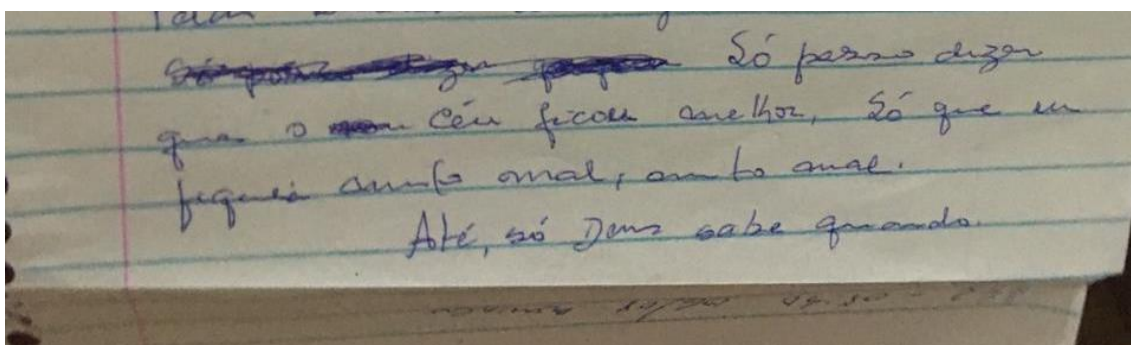 Só posso dizer
que o céu ficou melhor, só que eu
fiquei muito mal, muito mal.
Até, só Deus sabe quando.